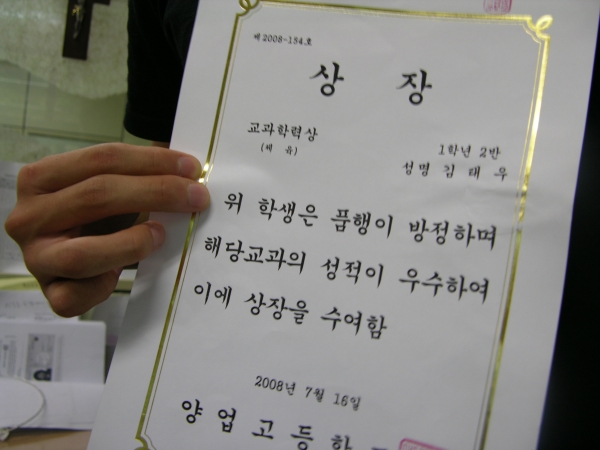 제 2008-134호
상 장
교과학력상
(체 육)
1학년 2반
성명 김 태 우
위 학생은 품행이 방정하며
해당교과의 성적이 우수하여
이에 상장을 수여함
2008년 7월 16일
양 업 고 등 학